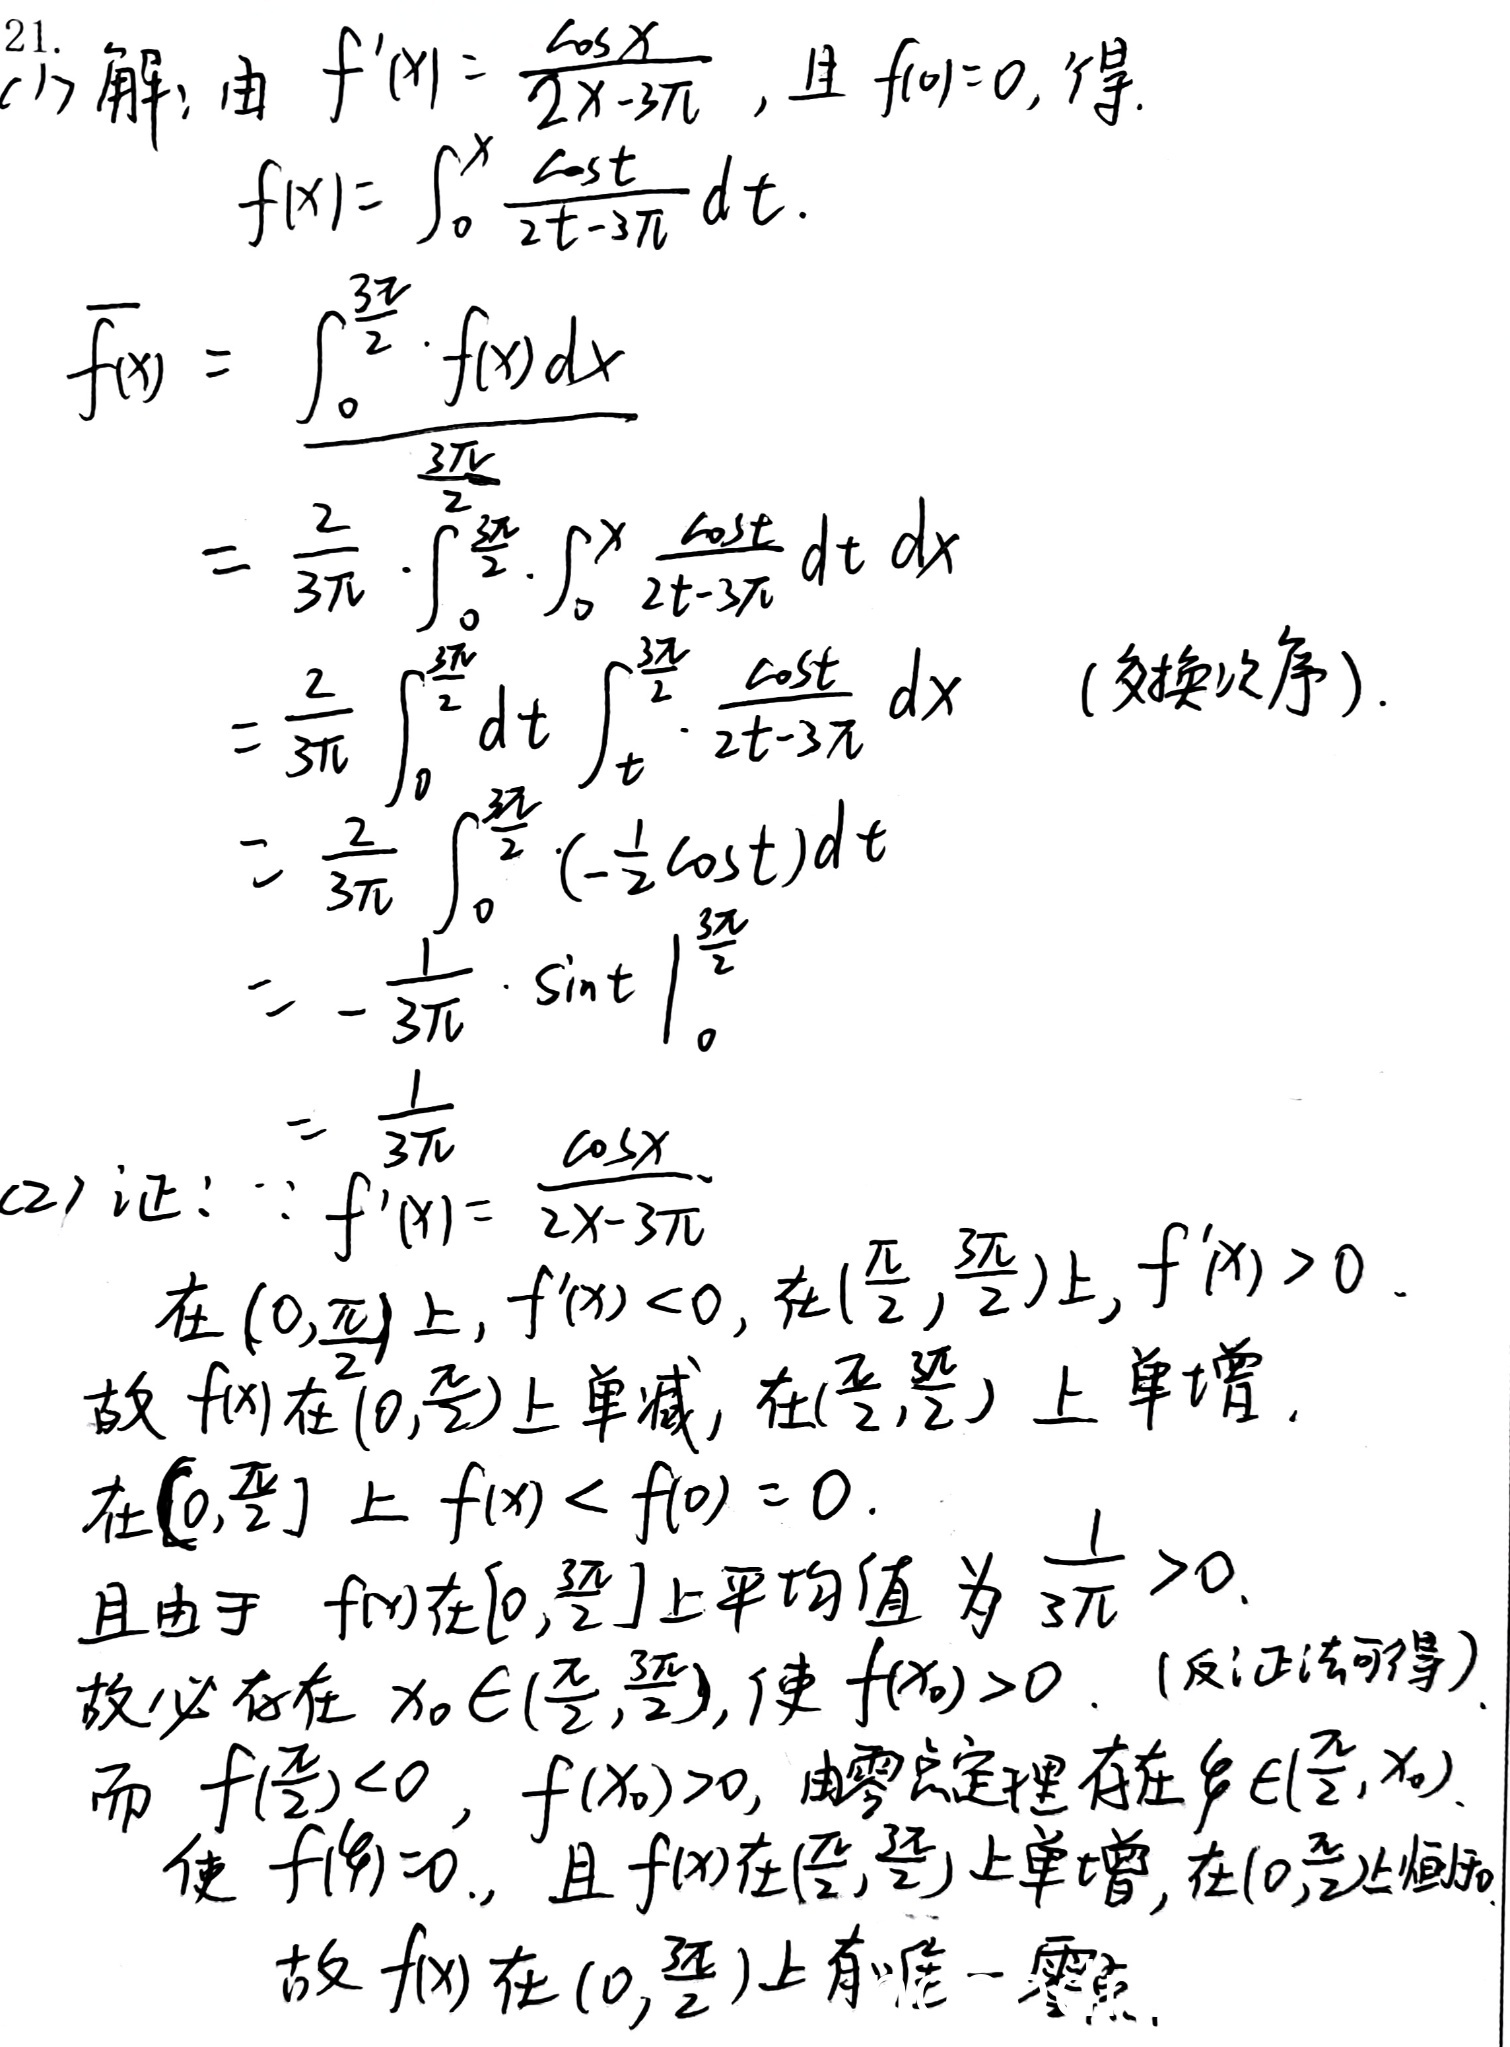 21.
(1) 解: 由 f'(x) = cosx/(2x-3π) , 且 f(0)=0, 得.
f(x) = ∫₀ˣ cost/(2t-3π) dt.
f̅(x) = (∫₀^(3π/2) · f(x)dx)/(3π/2)
= 2/(3π) · ∫₀^(3π/2) · ∫₀ˣ cost/(2t-3π) dt dx
= 2/(3π) ∫₀^(3π/2) dt ∫ₜ^(3π/2) · cost/(2t-3π) dx (交换次序).
= 2/(3π) ∫₀^(3π/2) · (-1/2 cost)dt
= -1/(3π) · sint |₀^(3π/2)
= 1/(3π)
(2) 证: ∵ f'(x) = cosx/(2x-3π)
在 (0, π/2) 上, f'(x) < 0, 在(π/2, 3π/2)上, f'(x) > 0.
故 f(x) 在 (0, π/2) 上 单减, 在(π/2, 3π/2) 上 单增.
在[0, π/2] 上 f(x) < f(0) = 0.
且由于 f(x)在[0, 3π/2]上平均值 为 1/(3π) > 0.
故必存在 x₀ ∈ (π/2, 3π/2), 使 f(x₀) > 0. (反证法可得).
而 f(π/2) < 0, f(x₀) > 0, 由零点定理 存在 ξ ∈ (π/2, x₀).
使 f(ξ) = 0., 且 f(x)在(π/2, 3π/2)上单增, 在(0, π/2)上恒<0.
故 f(x) 在 (0, 3π/2) 上有唯一零点.